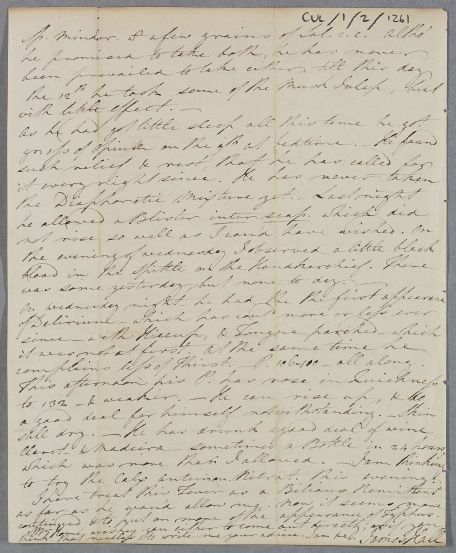 CUL/1/2/1261
Sp. Minder. & a few grains of Sal. c.c. Altho'
he promised to take both, he has never
been prevailed to take either, till this day
the 12th he took some of the Musk Julep, but
with little effect. —
As he had got little sleep all this time he got
gr. ifs of Opium on the 9th at bedtime. — He found
such relief & rest that he has called for
it every night since. He has never taken
the Diaphoretic Mixture yet. — Last night
he allowed a Blister inter scap. which did
not rise so well as I could have wished. On
the evening of wednesday I observed a little black
blood in the Spittle on the Handkerchief. There
was some yesterday but none to day. —
On wednesday night he had the first appearance
of Delirium which has been more or less ever
since — with Hiccup, & Tongue parched — which
it was not at first. At the same time he
complains less of thirst. — P. 106-100 — all along.
This afternoon his P. has rose in Quickness
to 132 — & weaker. — He can rise up, & do
a good deal for himself notwithstanding. — Skin
still dry. — He has drunk a good deal of wine
Claret & Madeira — sometimes a Bottle in 24 hours
which was more than I allowed. — I am thinking
to try the Calx Antimon. Nitrat. this evening.
I have treat this Fever as a Bilious Remittent
as far as he would allow me. Now it seems more
continued & to put on more of the appearance of Typhus.
you either to come out directly, or if you
to write me your advice. I am
James